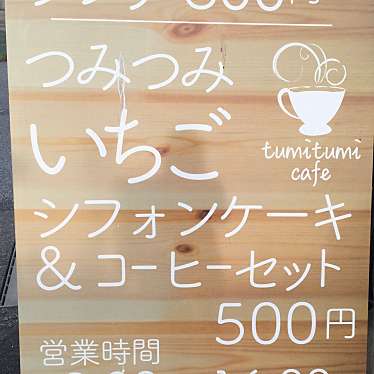 つみつみ
いちご
tumitumi
cafe
シフォンケーキ
&コーヒーセット
500円
営業時間